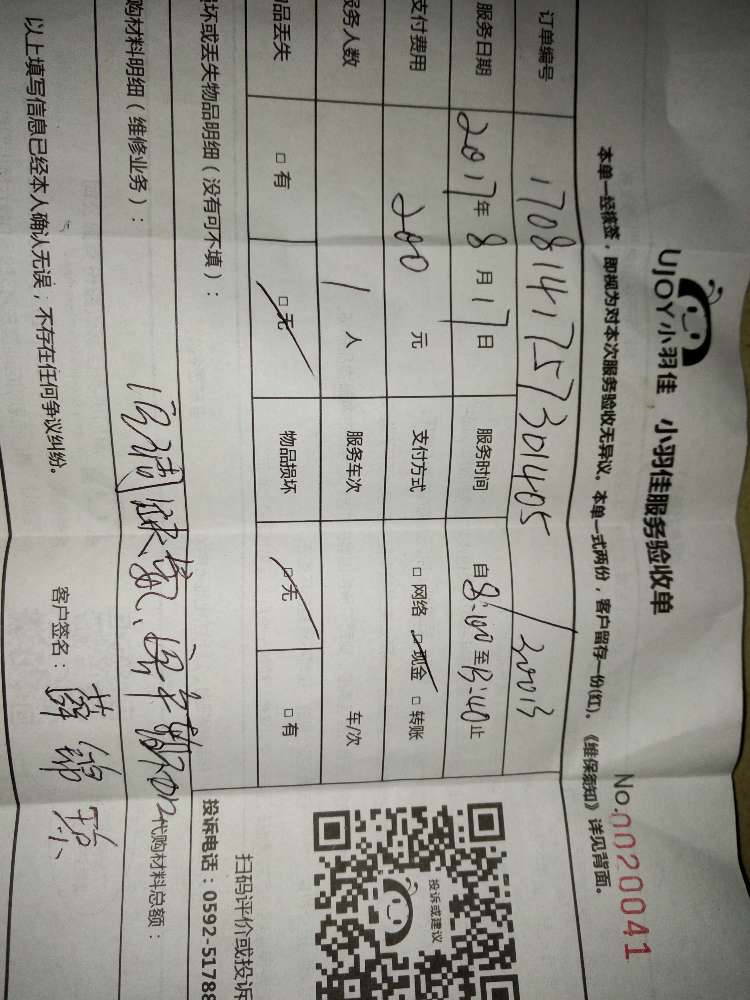 UJOY小羽佳 小羽佳服务验收单
No.0020041
本单一经核签，即视为对本次服务验收无异议。本单一式两份，客户留存一份(红)。《维保须知》详见背面。
订单编号 1708141757301405 / 20013
服务日期 2017年8月17日 服务时间 自8:00至 :40止
支付费用 200元 支付方式 □网络 □现金 □转账
服务人数 1人 服务车次 车/次
物品丢失 □有 □无 物品损坏 □无 □有
坏或丢失物品明细（没有可不填）：
购材料明细（维修业务）：
代购材料总额：
以上填写信息已经本人确认无误，不存在任何争议纠纷。
客户签名：
投诉或建议
扫码评价或投诉
投诉电话：0592-5178